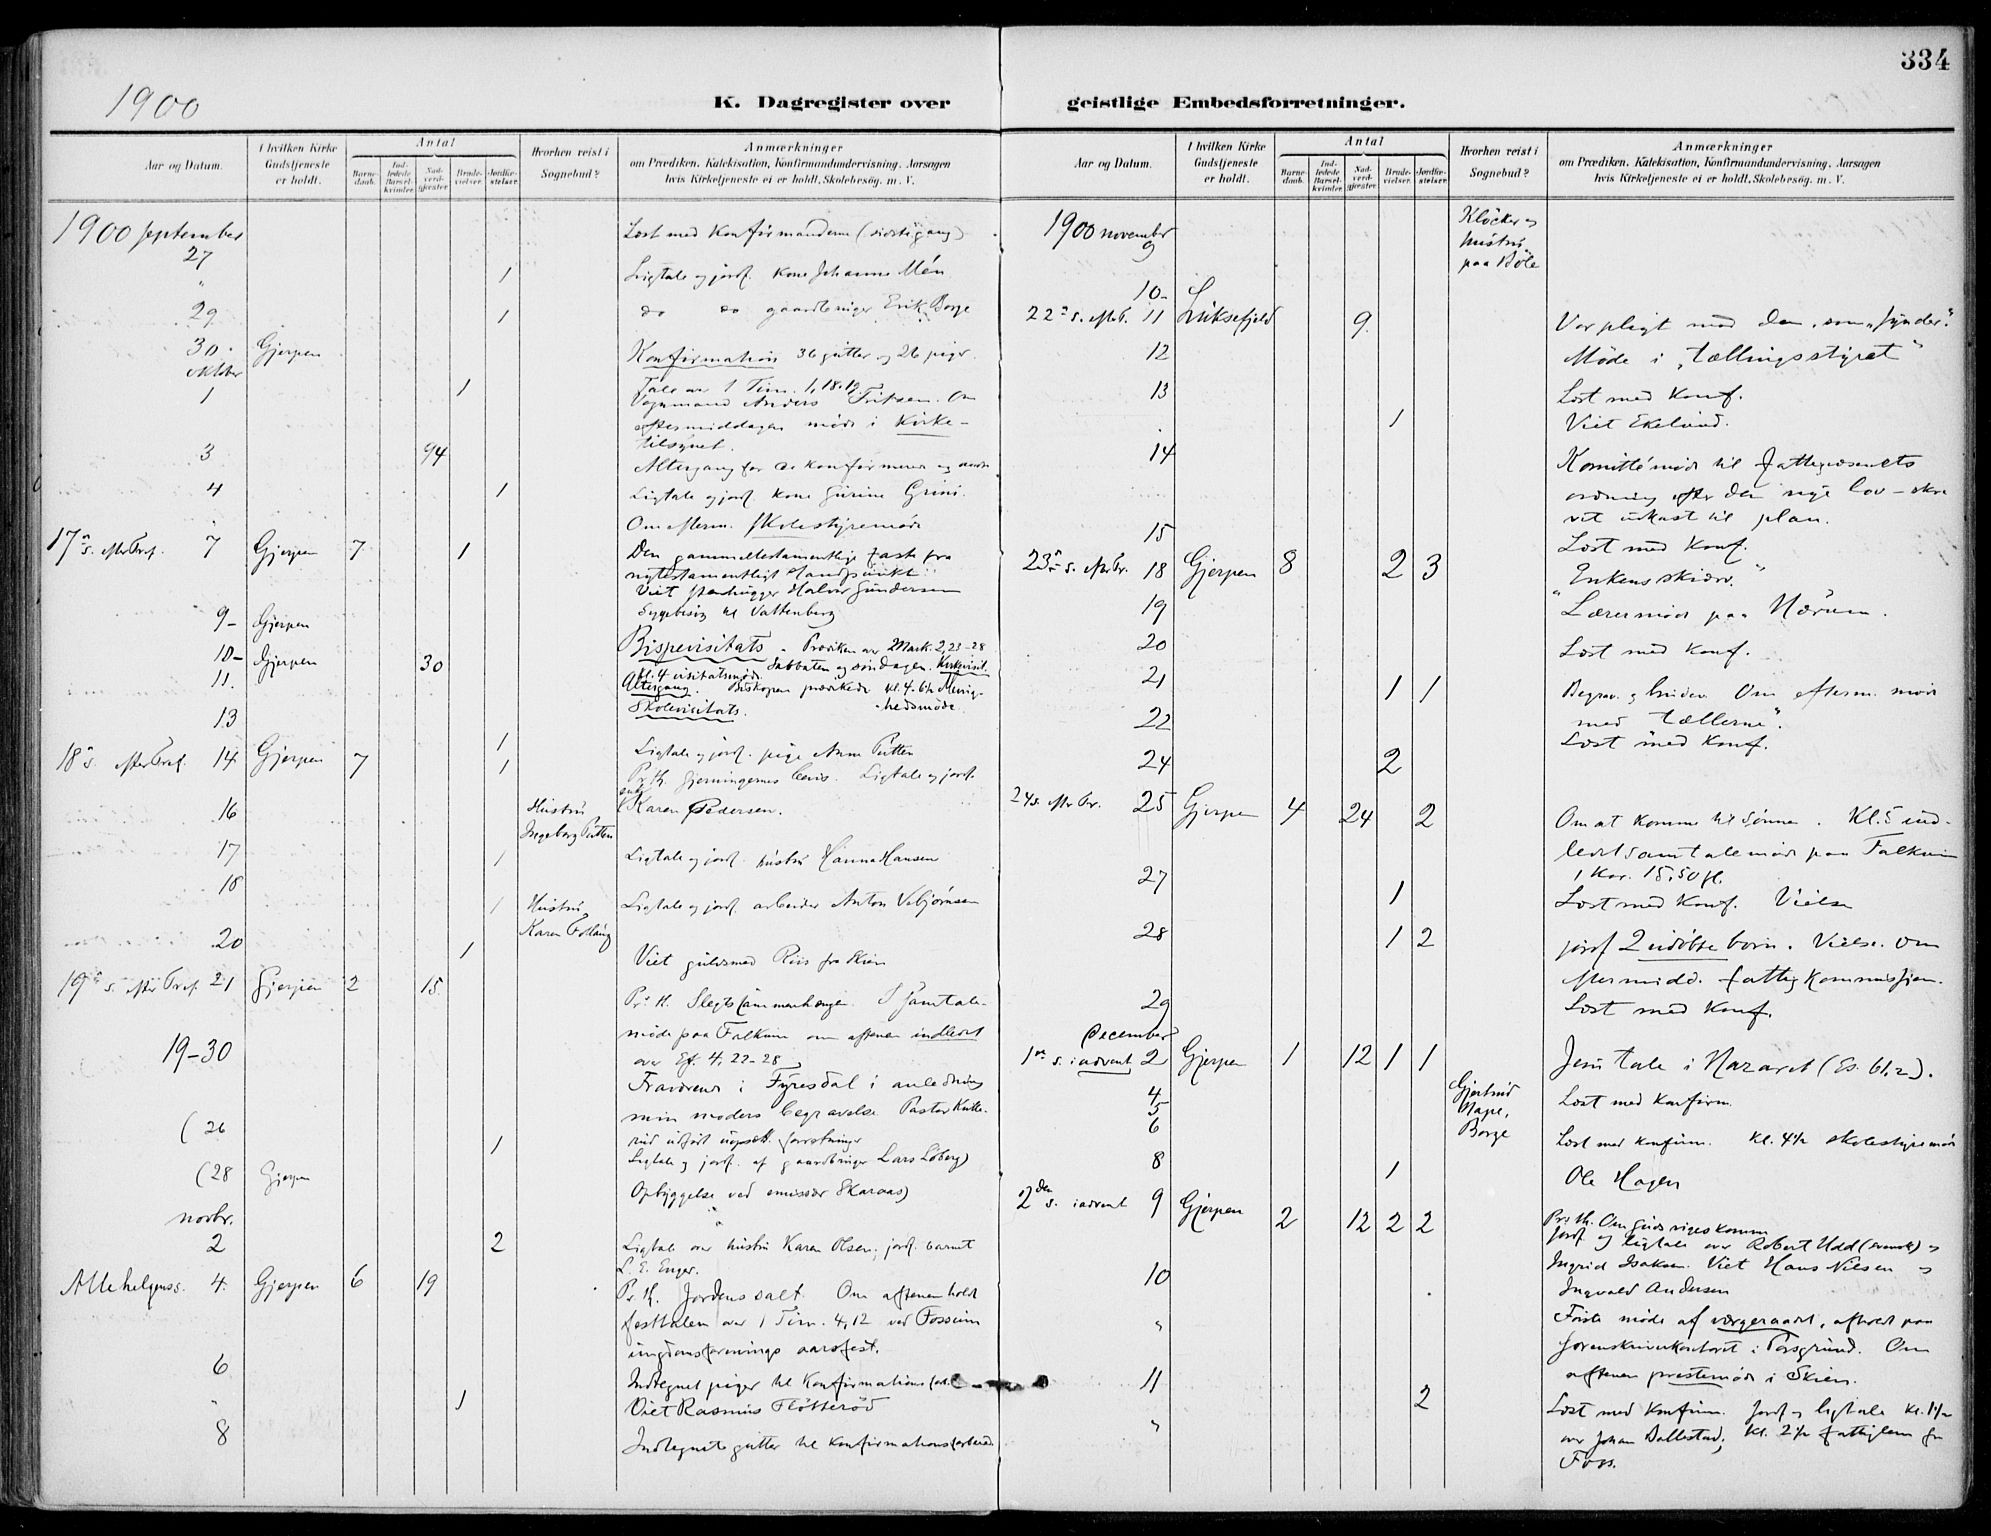 334
1900
K. Dagregister over
geistlige Embedsforretninger.
Aar og Datum.
I hvilken Kirke Gudstjeneste er holdt.
Antal
Barnedaab.
Indledede Barselkvinder.
Nadverdgjæster.
Brudevielser.
Jordfæstelser.
Hvorhen reist i Sognebud?
Anmærkninger
om Prædiken. Katekisation, Konfirmandundervisning, Aarsagen
hvis Kirketjeneste ei er holdt, Skolebesøg. m. V.
1900 september
27 Læst med Konfirmanderne (sidste gang)
" 1 Ligtale og jordf. kone Johanne Mén
29 1 do do gaardbruger Erik Borge
30 Gjerpen Konfirmation 36 gutter og 26 piger.
oktbr Tale over 1 Tim. 1,18.19.
1 1 Vognmand Anders Eriksen. Om
eftermiddagen møde i Kirke-
tilsynet.
3 94 Altergang for de konfirmerede og andre
4 1 Ligtale og jordf. kone Gurine Grini.
" Om efterm. skolestyremøde
17de s. efter Tref. 7 Gjerpen 7 1 Den gammeltestamentlige faste fra
nytestamentligt standpunkt.
Viet stenhugger Halvor Gundersen
Sygebesøg til Vattenberg
9 Gjerpen
10 Gjerpen 30 Bispevisitats. Præken over Mark. 2,23-28
Sabbaten og søndagen. Kirkevisit.
11. kl. 4 visitatsmøde
Altergang. Biskopen prækede kl. 4. 6½ Menig-
hedsmøde.
13 Skolevisitats.
1 Ligtale og jordf. pige Anne Putten
18de s. efter Tref. 14 Gjerpen 7 1 Pr. th. Gjerningernes bevis. Ligtale og jordf.
enke Karen Pedersen.
16 Hustru
Ingeborg Putten
17 1 Ligtale og jordf. hustru Hanna Hansen
18
1 Hustru Ligtale og jordf. arbeider Anton Vebjørnsen
Karen Follaug
20 1 Viet guldsmed Riis fra Skien
19de s. efter Tref. 21 Gjerpen 2 15 Pr. th. Slegtssammenhengen. I samtale-
møde paa Falkum om aftenen indledet
over Ef. 4, 22-28
19-30 Fraværende i Fyresdal i anledning
min moders begravelse. Pastor
(26 1 udført uopsætt. forretninger
Ligtale og jordf. af gaardbruger Lars Løberg)
(28 Gjerpen Opbyggelse ved emissær Skaraas)
novbr.
2 2 Ligtale over hustru Karen Olsen; jordf. barnet
L. E. Enger.
Alle helgens s. 4. Gjerpen 6 19 Pr. th. Jordens salt. Om aftenen holdt
festtalen over 1 Tim. 4,12 ved Fossum
ungdomsforenings aarsfest.
6 Indtegnet piger til Konfirmations
" 1 Viet Rasmus Fløtterød
8 Indtegnet gutter til konfirmationsforbered.
Aar og Datum.
I hvilken Kirke Gudstjeneste er holdt.
Antal
Barnedaab.
Indledede Barselkvinder.
Nadverdgjæster.
Brudevielser.
Jordfæstelser.
Hvorhen reist i Sognebud?
Anmærkninger
om Prædiken. Katekisation, Konfirmandundervisning, Aarsagen
hvis Kirketjeneste ei er holdt, Skolebesøg. m. V.
1900 november Kløcker og
9 hustru
paa Bøle
10
22de s. efter tr. 11 Luksefjeld 9 Vor pligt mod den, som „synder."
12 Møde i „tællingsstyret"
13 Læst med Konf.
1 Viet Ekelund.
14 Komitémøde til fattigvæsenets
ordning efter den nye lov - skre
vet udkast til plan.
15 Læst med Konf.
23de s. efter tr. 18 Gjerpen 8 2 3 „Enkens skjærv."
19 Lærermøde paa Nærum.
20 Læst med Konf.
21 1 1 Begrav. og brudev. Om efterm. møde
med „tællerne".
22 Læst med Konf.
24 2
24 s. efter tr. 25 Gjerpen 4 24 2 Om at komme til sønnen. Kl. 5 ind-
ledet samtalemøde paa Falkum
1 Kor. 15, 50 fl.
27 1 Læst med Konf. Vielse
28 1 2 jordf 2 udøbte børn. Vielse. Om
eftermidd. fattigkommissjon.
29 Læst med Konf.
December
1ste s. i advent 2 Gjerpen 1 12 1 1 Jesu tale i Nazaret (Es. 61,2).
4 Gjertrud Læst med Konfirm.
5 Nape,
6 Borge Læst med konfirm. Kl. 4½ skolestyremøde
8 1 Ole Hagen
2den s. i advent 9 Gjerpen 2 12 2 2 Pr. th. Om Guds riges komme
Jordf. og ligtale over Robert Udd (svensk) og
Ingrid Isaksen. Viet Hans Nilsen og
Ingvald Andersen
10 Første møde af værgeraadet, aftholdt paa
" Sorenskriverkontoret i Porsgrund. Om
aftenen prestemøde i Skien.
11 2 Læst med Konfirm. Jordf. og ligtale Kl. 1½
" over Johan Ballestad, Kl. 2½ fattiglem fra
Foss.